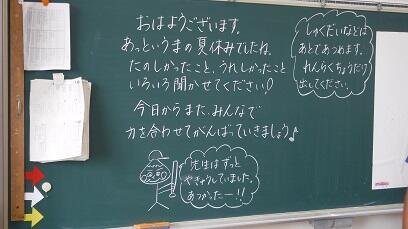 おはようございます。
あっというまの夏休みでしたね。
たのしかったこと、うれしかったこと
いろいろ聞かせてください!
今日からまた、みんなで
力を合わせてがんばっていきましょう♪
しゅくだいなどは
あとであつめます。
れんらくちょうだけ
出してください。
先生はずっと
やきゅうしていました。
あつかったー!!